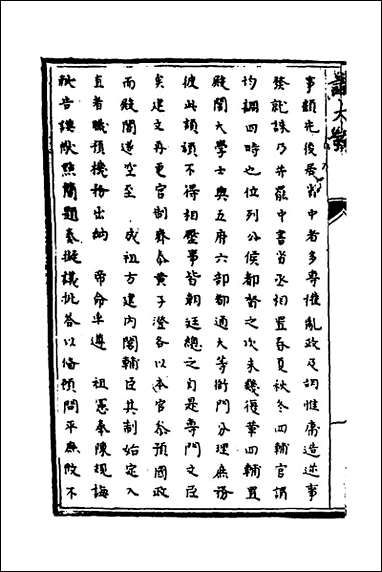 事顓先後居省中者多專擅亂政及胡惟庸造逆事
發就誅乃并罷中書省丞相置春夏秋冬四輔官謂
均調四時之位列公侯都督之次未幾復革四輔置
殿閣大學士與五府六部都通大等衙門分理庶務
彼此頡頏不得相壓事皆朝廷總之自是專門文臣
矣建文再更官制齊泰黃子澄各以本官參預國政
而殿閣遂空至 成祖方建內閣輔臣其制始定入
直者職預機務出納 帝命率遵 祖憲奉陳規誨
告謨猷點簡題奏擬議批荅以俻顧問平庶政不